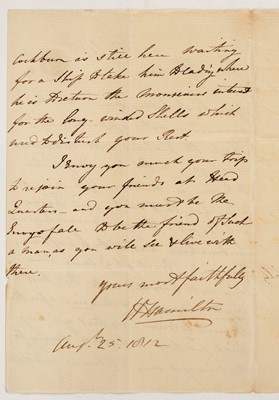 Cockburn is still here waiting
for a Ship to take him to Cadiz, where
he is to return the Monsieurs interest
for the long winded Shells which
used to disturb your Rest
I envy you much your trip
to rejoin your friends at Head
Quarters - and you must be the
Envy of all to be the friend of such
a man, as you will see & live with
there.
yours most faithfully
H Hamilton
Augt. 25. 1812